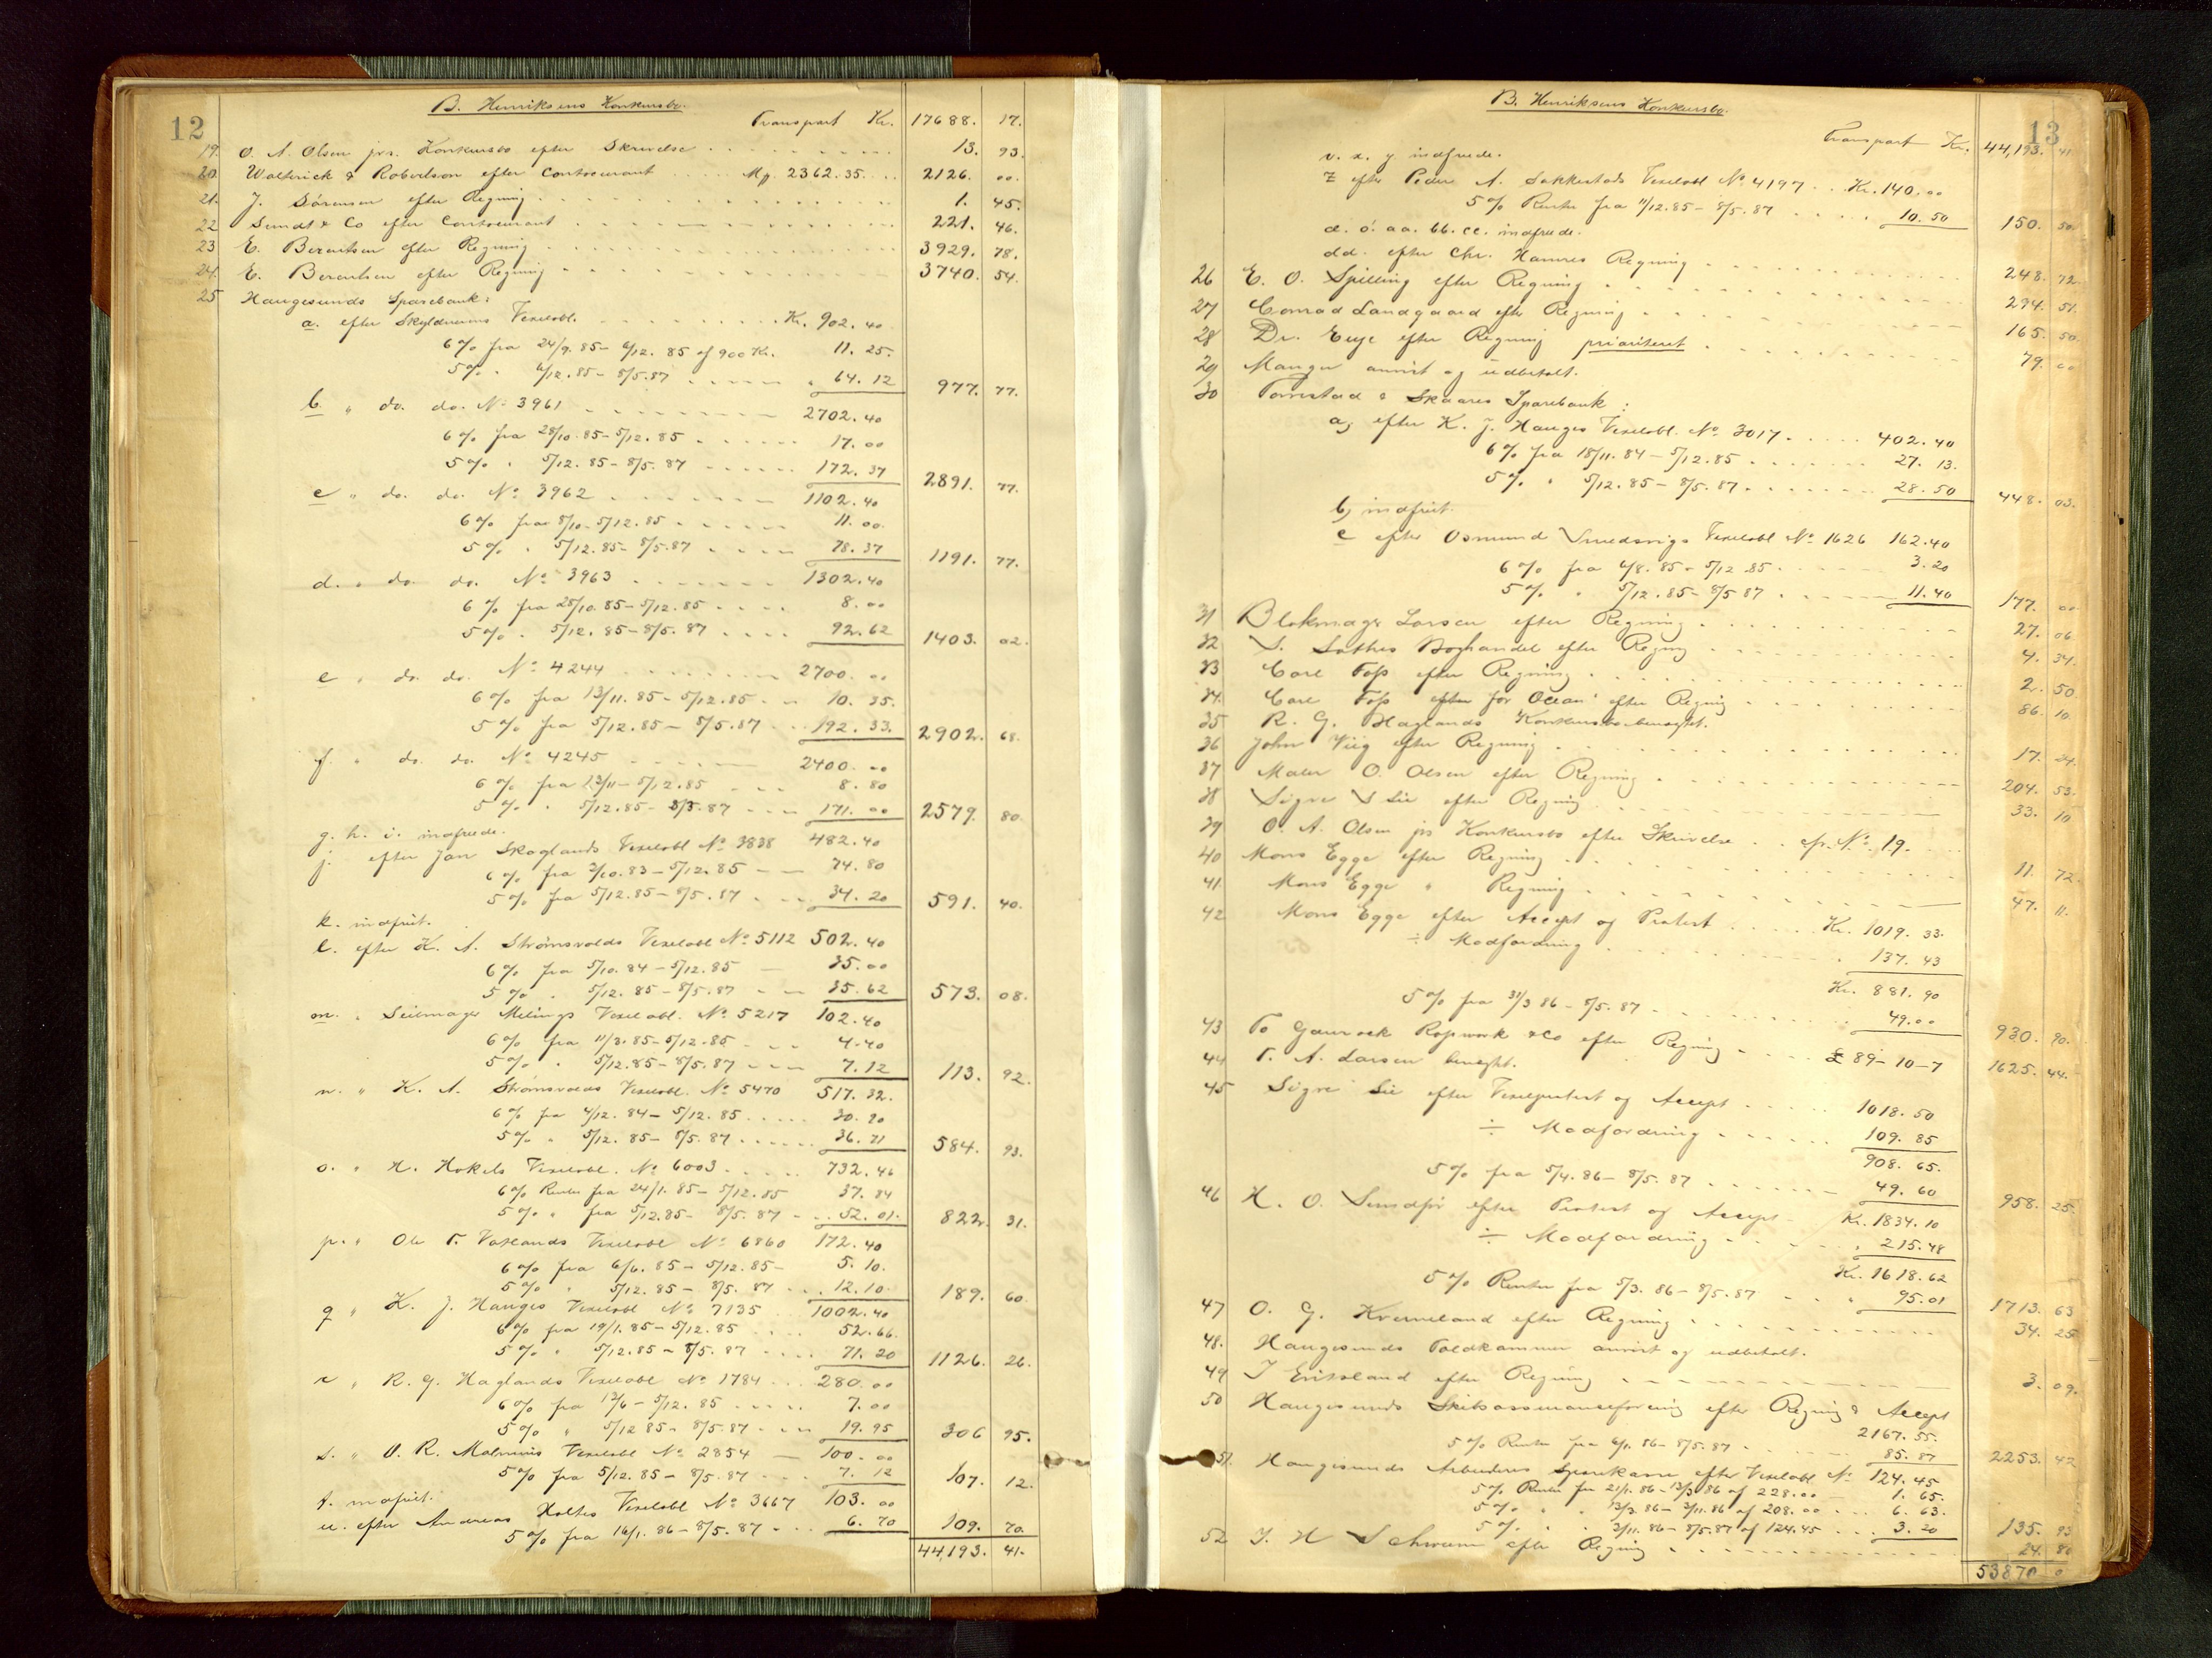 12
B. Henriksens Konkursbo.
Transport Kr. 17688. 17.
19. O. A. Olsen jrs. Konkursbo efter Skrivelse 13. 93.
20. Walterick & Robertson efter Contocurant Mp. 2362.35. 2126. 00.
21. J. Sørensen efter Regning 1. 45.
22 Sundt & Co efter Contocurant 221. 46.
23 E. Berentsen efter Regning 3929. 78.
24. E. Berentsen efter Regning 3740. 54.
25 Haugesunds Sparebank:
a. efter Skyldnerens Vexelobl. Kr. 902. 40
6% fra 24/9. 85 - 5/12. 85 af 900 Kr. 11. 25.
5% " 5/12. 85 - 8/5. 87 " 64. 12 977. 77.
b. " do. do. No 3961 2702. 40
6% fra 28/10. 85 - 5/12. 85 17. 00
5% " 5/12. 85 - 8/5. 87 172. 37 2891. 77.
c " do. do. No 3962 1102. 40
6% fra 8/10 - 5/12. 85 11. 00.
5% " 5/12. 85 - 8/5. 87 78. 37 1191. 77.
d. " do. do. No 3963 1302. 40
6% fra 28/10. 85 - 5/12. 85 8. 00
5% " 5/12. 85 - 8/5. 87 92. 62 1403. 02.
e " do. do. No 4244 2700. 00
6% fra 13/11. 85 - 5/12. 85 10. 35.
5% fra 5/12. 85 - 8/5. 87 192. 33. 2902. 68.
f. " do. do. No 4245 2400. 00
6% fra 13/11 - 5/12. 85 8. 80
5% " 5/12. 85 - 8/5. 87 171. 00 2579. 80.
g. h. i. indfriede.
j. efter Jan Skoglands Vexelobl No 3838 482. 40
6% fra 3/10. 83 - 5/12. 85 74. 80
5% fra 5/12. 85 - 8/5. 87 34. 20 591. 40.
k. indfriet.
l. efter K. A. Strømsvolds Vexelobl No 5112 502. 40
6% fra 5/10. 84 - 5/12. 85 35. 00
5% " 5/12. 85 - 8/5. 87 35. 62 573. 08.
m. " Seilmager Melings Vexelobl. No 5217 102. 40
6% fra 11/3. 85 - 5/12. 85 4. 40
5% " 5/12. 85 - 8/5. 87 7. 12 113. 92.
n. " K. A. Strømsvolds Vexelobl. No 5470 517. 32.
6% fra 4/12. 84 - 5/12. 85 30. 90
5% " 5/12. 85 - 8/5. 87 36. 71 584. 93.
o. " H. Hokels Vexelobl. No 6003 732. 46
6% Renter fra 24/1. 85 - 5/12. 85 37. 84
5% " fra 5/12. 85 - 8/5. 87 52. 01. 822. 31.
p. " Ole T. Vatlands Vexelobl No 6860 172. 40
6% fra 6/6. 85 - 5/12. 85 - 5. 10.
5% " 5/12. 85 - 8/5. 87 12. 10 189. 60
q " K. J. Hauges Vexelobl No 7135 1002. 40
6% fra 19/1. 85 - 5/12. 85 52. 66.
5% " 5/12. 85 - 8/5. 87 71. 20 1126. 26.
r " R. G. Haglands Vexelobl No 1784 280. 00
6% fra 13/6 - 5/12. 85 7. 00
5% " 5/12 85 - 8/5. 87 19. 95 306 95.
s. " O. R. Malmins Vexelobl No 2854 100. 00
5% fra 5/12. 85 - 8/5. 87 7. 12 107. 12.
t. indfriet.
u. efter Andreas Holtes Vexelobl No 3667 103. 00
5% fra 16/1. 86 - 8/5. 87 6. 70 109. 70.
44,193. 41.
13
B. Henriksens Konkursbo.
Transport Kr. 44,193. 41
v. x. y. indfriede.
z efter Peder A. Sakkestads Vexelobl No 4197 Kr. 140. 00
5% Renter fra 11/12. 85 - 8/5. 87 10. 50 150. 50.
æ. ø. aa. bb. cc. indfriede.
dd. efter Chr. Hamres Regning 248. 72.
26 E. O. Spilling efter Regning 294. 51.
27 Conrad Landgaard efter Regning 165. 50.
28 Dr. Euje efter Regning prioriteret 79. 00
29 Manger anvist og udbetalt.
30 Torvestad & Skaares Sparebank:
a, efter K. J. Hauges Vexelobl. No 3017 402. 40
6% fra 18/11. 84 - 5/12. 85 27. 13.
5% " 5/12. 85 - 8/5. 87 28. 50 448. 03.
b, indfriet.
c efter Osmund Smedsvigs Vexelobl No 1626 162. 40
6% fra 6/8. 85 - 5/12. 85 3. 20
5% " 5/12. 85 - 8/5 87 11. 40 177. 00
31 Blokmager Larsen efter Regning 27. 06.
32 S. Sathes Boghandel efter Regning 4. 34.
33 Carl Foss efter Regning 2. 50
34. Carl Foss for Ocean efter Regning 86. 10.
35 R. G. Haglands Konkursbo benægtet.
36 John Viig efter Regning 17. 24.
37 Maler O. Olsen efter Regning 204. 53.
38 Sigve S Lie efter Regning 33. 10
39 O. A. Olsen jrs Konkursbo efter Skrivelse cfr. No 19.
40 Mons Egge efter Regning 11. 72.
41. Mons Egge " Regning 47. 11.
42 Mons Egge efter Accept og Protest Kr. 1019. 33.
÷ Modfordring 137. 43
Kr. 881. 90
5% fra 31/3 86 - 8/5. 87 49. 00 930. 90.
43 To Gaurock Ropwork & Co efter Regning £ 89-10-7 1625. 44.
44 T. A. Larsen benægt.
45 Sigve Lie efter Vexelprotest og Accept 1018. 50
÷ Modfordring 109. 85
908. 65.
5% fra 5/4. 86 - 8/5. 87 49. 60 958. 25.
46 H. O. Sundfør efter Protest og Accept Kr. 1834. 10
÷ Modfordring " 215. 48
Kr. 1618. 62
5% Renter fra 5/3. 86 - 8/5. 87 " 95. 01 1713. 63
47 O. G. Kverneland efter Regning 34. 25
48. Haugesunds Toldkammer anvist og udbetalt.
49 T Eriksland efter Regning 3. 09.
50 Haugesunds Skibsassuranceforening efter Regning & Accept
2167. 55.
5% Renter fra 6/1. 86 - 8/5. 87 85. 87 2253. 42
51. Haugesunds Arbeideres Sparekasse efter Vexelobl No 124. 45
5% Renter fra 21/1. 86 - 13/3 86 af 228. 00 1. 65.
5% " " 13/3. 86 - 3/11. 86 af 208. 00 6. 63.
5% " " 3/11. 86 - 8/5. 87 af 124. 45 3. 20 135. 93
52 J. H Schwenn efter Regning 24. 80
53870